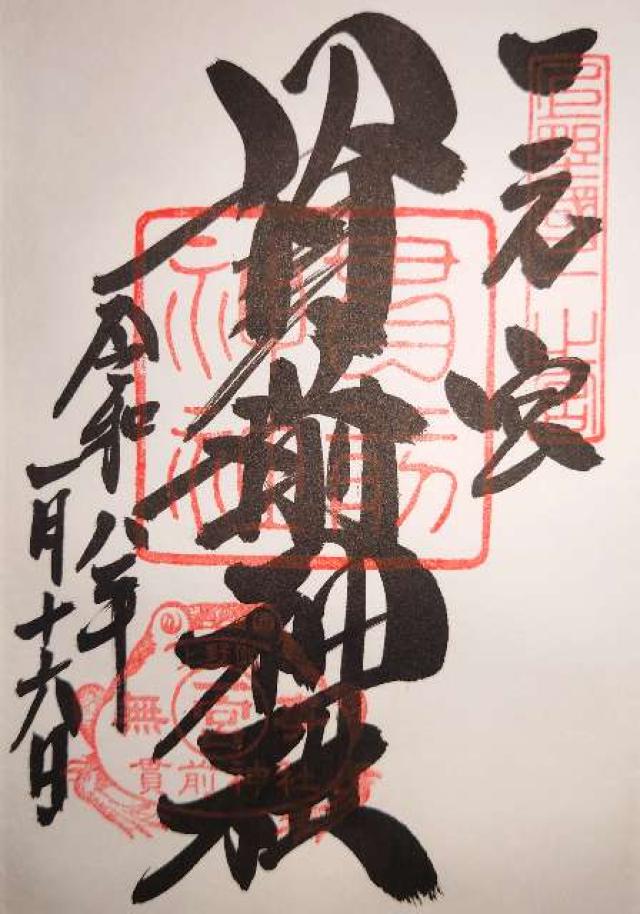 一之宮
上野國一之宮
貫前神社
貫前神社
令和八年
一月十六日
上野國
無
宮
貫前神社